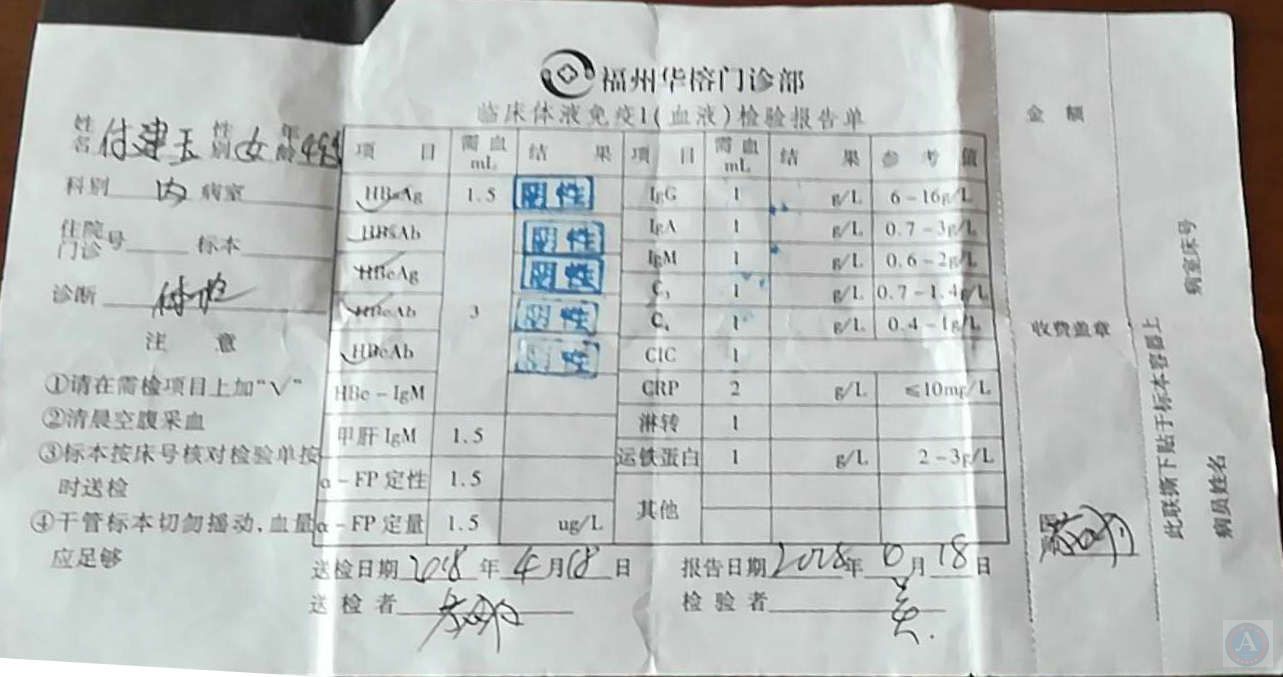 福州华榕门诊部
临床体液免疫1(血液)检验报告单
姓名 付建玉 性别 女 年龄
科别 内 病室
住院门诊号 标本
诊断
注 意
①请在需检项目上加“√”
②清晨空腹采血
③标本按床号核对检验单按
时送检
④干管标本切勿摇动,血量
应足够
項 目 需血mL 结 果 項 目 需血mL 结 果 参 考 值
HBsAg 1.5 阴性 IgG 1 g/L 6-16g/L
HBsAb 阴性 IgA 1 g/L 0.7-3g/L
HBeAg 阴性 IgM 1 g/L 0.6-2g/L
HBeAb 3 阴性 C₃ 1 g/L 0.7-1.4g/L
HBcAb 阴性 C₄ 1 g/L 0.4-1g/L
CIC 1
HBc-IgM CRP 2 g/L ≤10mg/L
甲肝IgM 1.5 淋转 1
α-FP定性 1.5 运铁蛋白 1 g/L 2-3g/L
α-FP定量 1.5 ug/L 其他
送检日期 2018 年 4 月 18 日 报告日期 年 月 18 日
送检者 检验者
金 额
收费盖章
此联撕下贴于标本容器上
病室床号
病员姓名